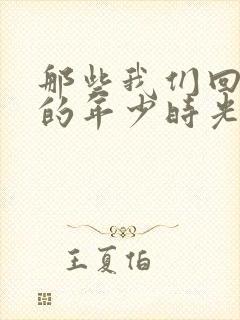 那些我们回
的年少时光
王夏伯